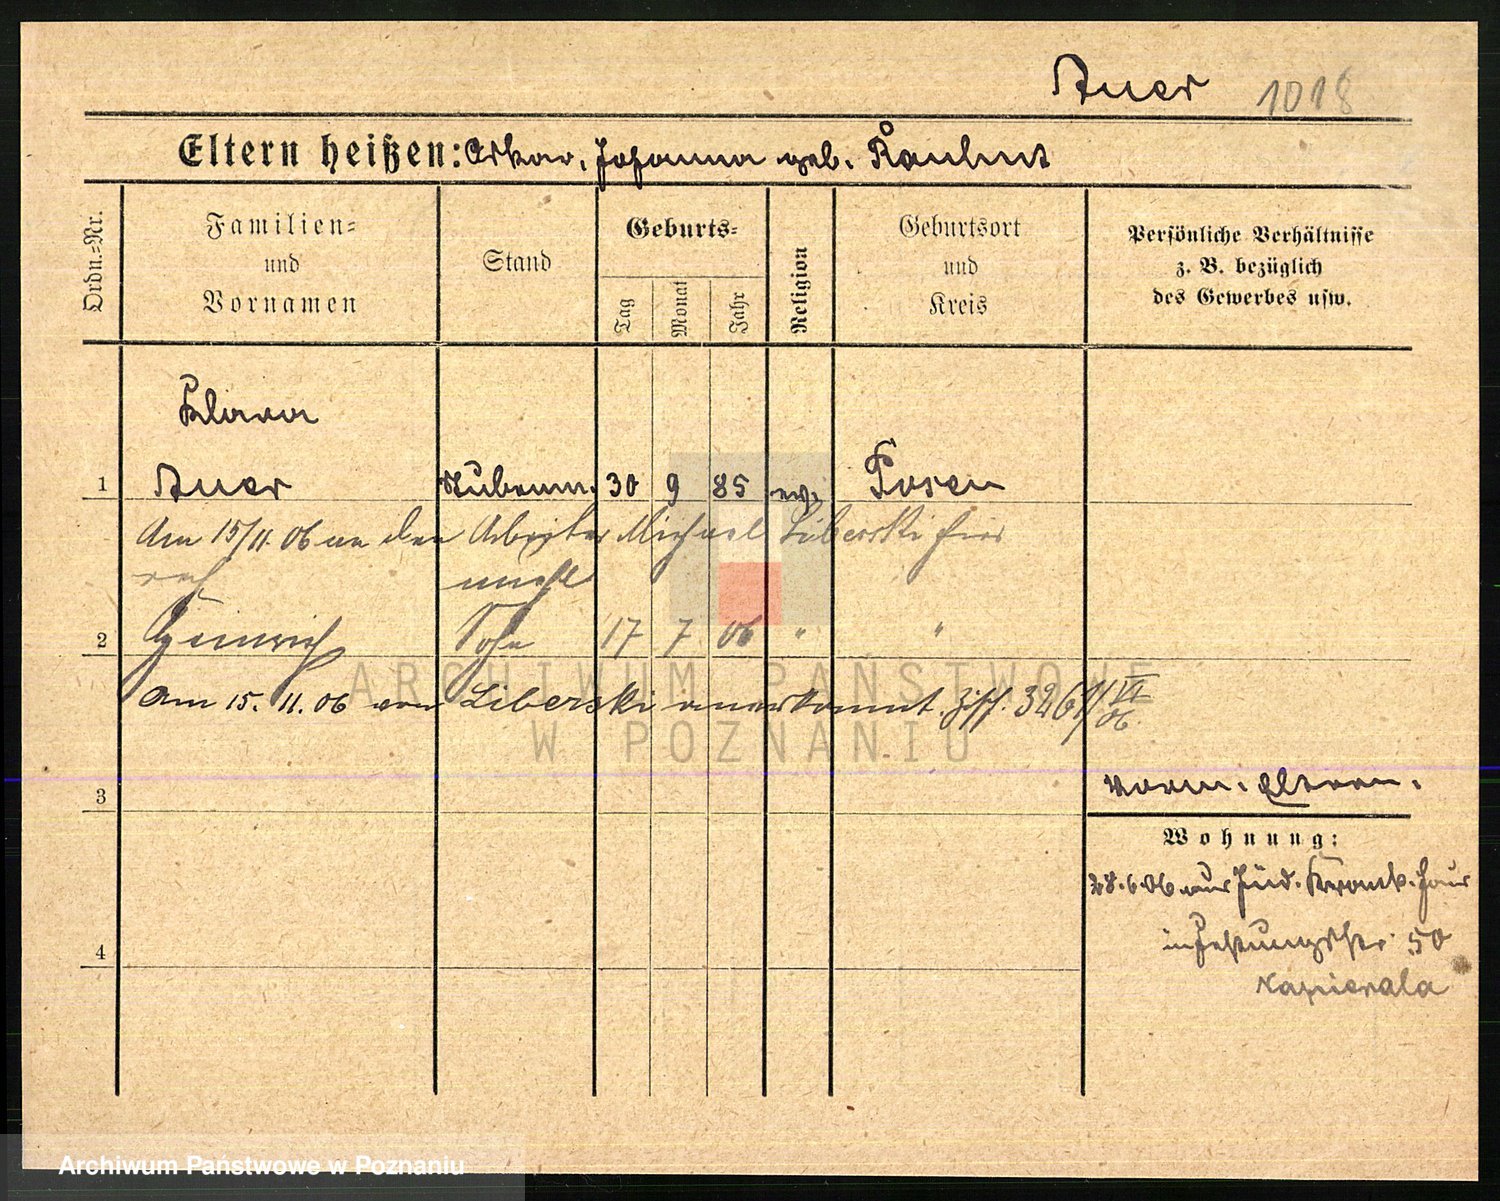 Auer 1018
Eltern heißen: Oskar, Johanna geb. Rauhut
Ordn.=Nr.
Familien=
und
Vornamen
Stand
Geburts=
Tag
Monat
Jahr
Religion
Geburtsort
und
Kreis
Persönliche Verhältnisse
z. B. bezüglich
des Gewerbes usw.
Klara
1 Auer 30 9 85 ev. Posen
Am 15/11. 06 an den Arbeiter Michael Liberski hier
2 Heinrich Sohn 17 7 06 " "
Am 15. 11. 06 von Liberski anerkannt.
ARCHIWUM PAŃSTWOWE
W POZNANIU
3
Eltern.
Wohnung:
28.6.06 aus Jüd. Krank. Haus
in 50
4
Kapierala
Archiwum Państwowe w Poznaniu